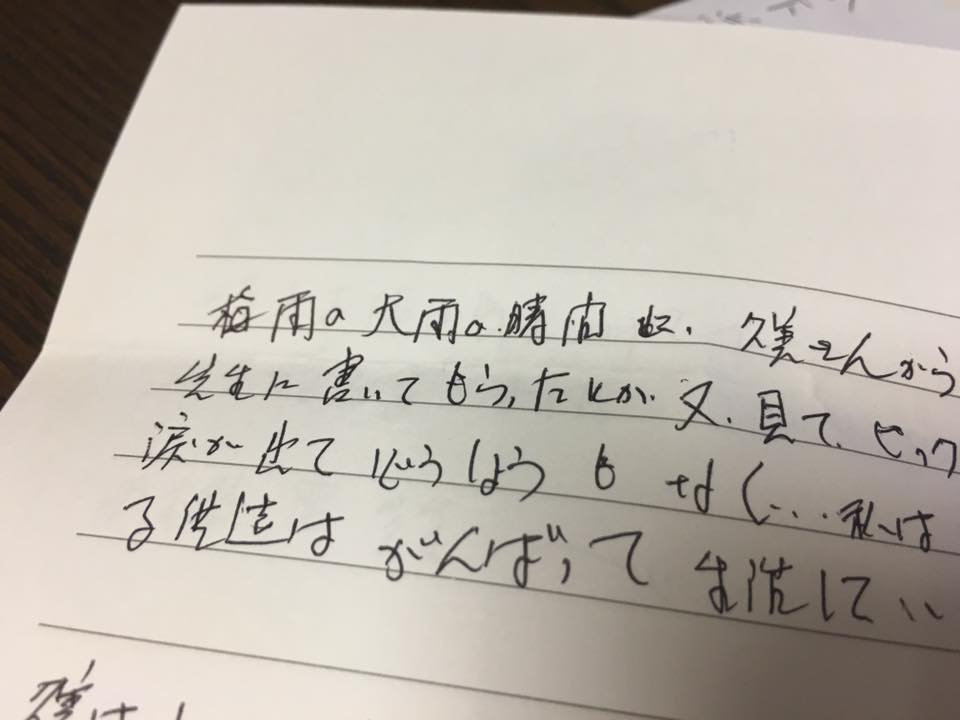 梅雨の大雨の晴間に、久美さんから
先生に書いてもらったとか、又、見て、ビック
涙が出てどうしようもなく...私は
子供達はがんばって生活してい